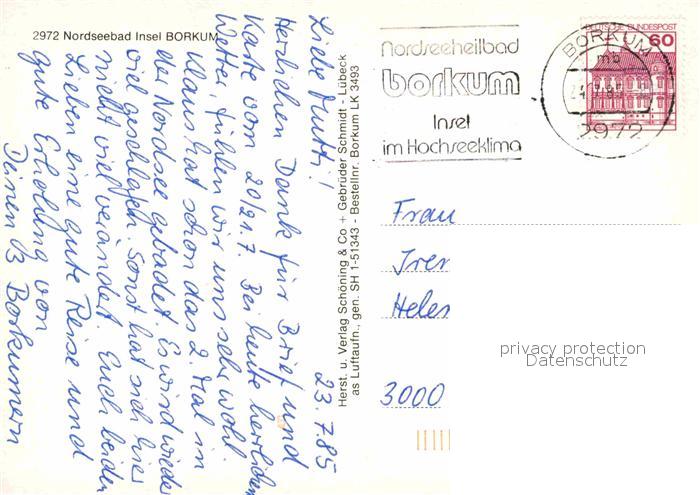 2972 Nordseebad Insel BORKUM
23.7.85
Liebe Mutti!
Herzlichen Dank für Brief und
Karte vom 20/21.7. Bei heute herrlichem
Wetter fühlen wir uns sehr wohl.
Klaus hat schon das 2. Mal in
der Nordsee gebadet. Es wird wieder
viel geschlafen. Sonst hat sich hier
nicht viel verändert. Euch beiden
Lieben eine gute Reise und
gute Erholung von
Deinen 3 Borkumern
Herst. u. Verlag Schöning & Co + Gebrüder Schmidt - Lübeck
as Luftaufn., gen. SH 1-51343 - Bestellnr. Borkum LK 3493
Nordseeheilbad
borkum
Insel
im Hochseeklima
DEUTSCHE BUNDESPOST
60
BORKUM
mb
2972
Frau
Irer
Heler
3000
privacy protection
Datenschutz